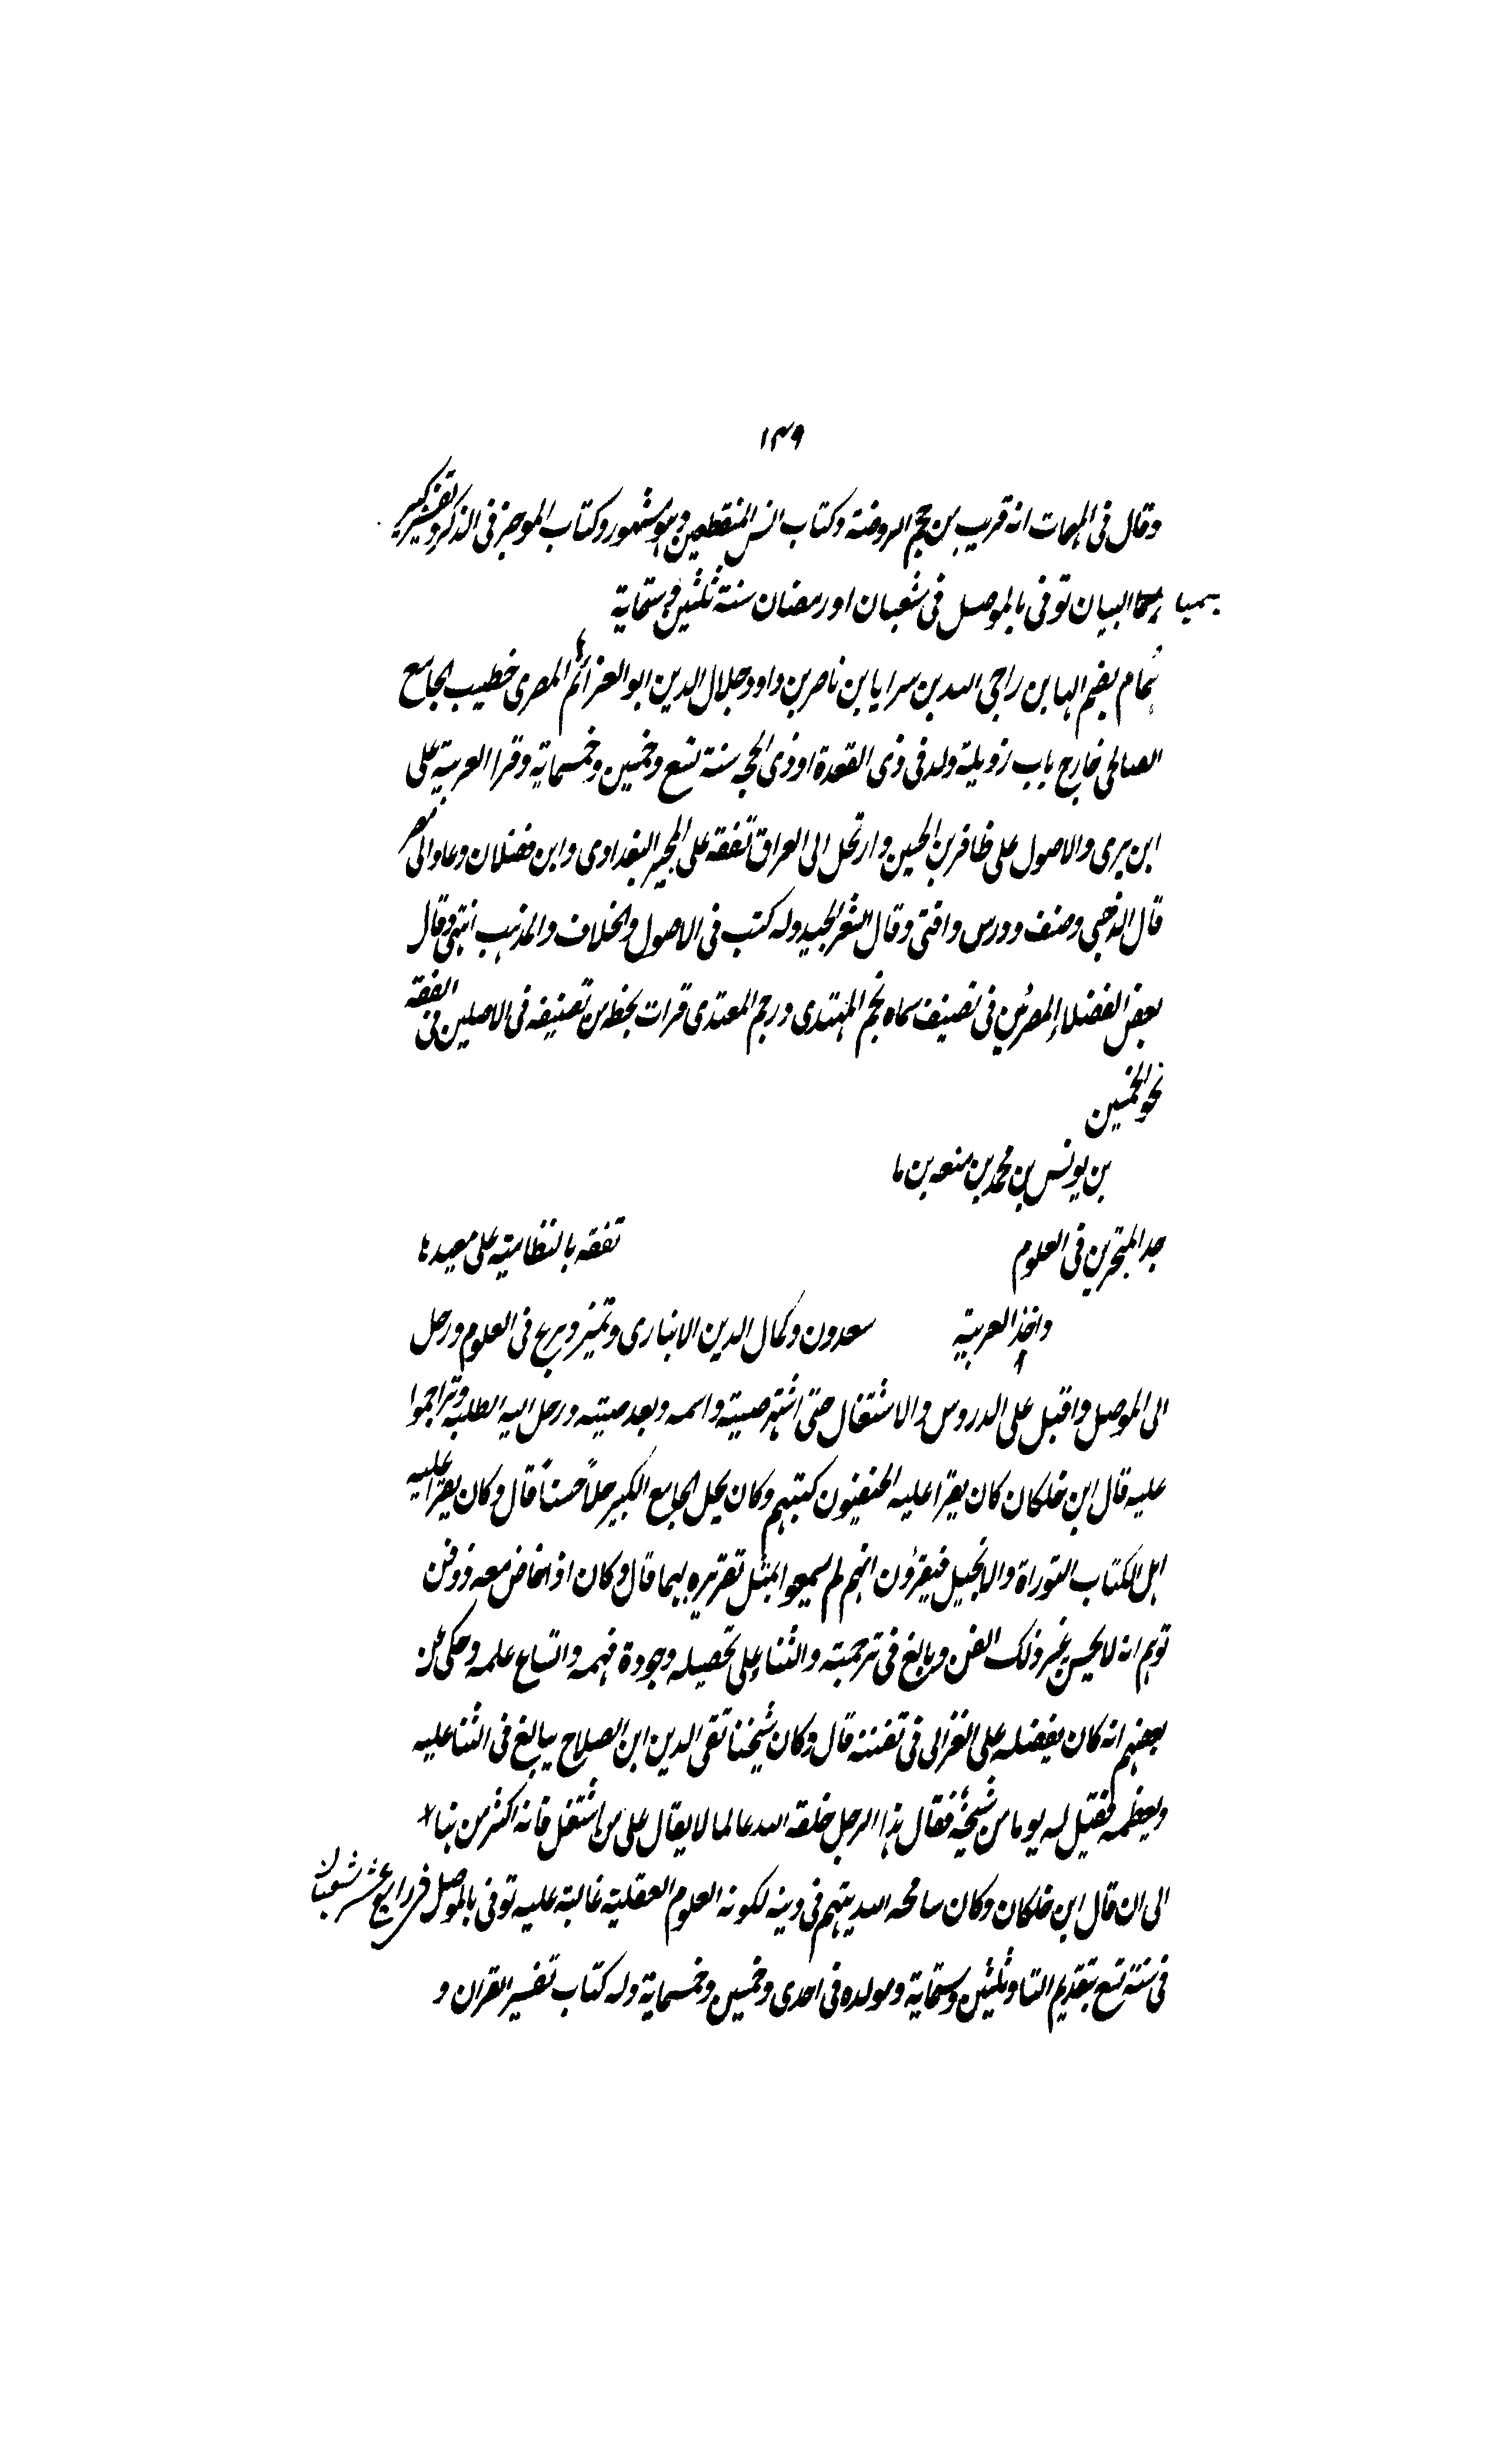 ١٣٩
وقال فى المهمات انه قريب من حجم الروضة وكتاب انس المنقطعين وهو مشهور وكتاب الموجز فى الذكر وتفسير كبير
يسميا البيان توفى بالموصل فى شعبان او رمضان سنة ثلثين وستماية
همام بضم الها بن راجى الله بن سرايا بن ناصر بن داود جلال الدين ابو العزائم المصرى خطيب الجامع
الصالحى خارج باب زويلة ولد فى ذى القعدة او ذى الحجه سنة تسع وخمسين وخمسماية وقرا العربية على
ابن برى والاصول على ظافر بن الحسين وارتحل الى العراق تفقه على المجير البغدادى وابن فضلان وعاد الى مصر
قال الذهبى وصنف ودرس وافتى وقال الشعر الجيد وله كتب فى الاصول والخلاف والمذهب انتهى وقال
بعض الفضلاء المصريين فى تصنيف سماه نجم المهتدى ورجم المعتدى قرات بخط من تصنيفه فى الاصلين فى الفقه
نحو الخمسين
بن يونس بن محمد بن منعه بن ما
حد المتبحرين فى العلوم تفقه بالنظامية على معيدها
واخذ العربية سعدون وكمال الدين الانبارى وتميز وبرع فى العلوم ورحل
الى الموصل واقبل على الدروس والاشتغال حتى اشتهر صيته واسمه وبعد صيته ورحل اليه الطلبه وتزاحموا
عليه قال ابن خلكان كان يقرا عليه الحنفيون كتبهم وكان يحل الجامع الكبير حلاً حسناً قال وكان يقرا عليه
اهل الكتاب التوراة والانجيل فيقرؤن انهم لم يسمعوا بمثل تقريره لهما قال وكان اذا خاض معه ذو فن
توهم انه لا يحسن غير ذلك الفن وبالغ فى ترجمته والثناء على تحصيله وجودة فهمه واتساع علمه وحكى عن
بعضهم انه كان يفضله على الغزالى فى تفننه قال وكان شيخنا تقى الدين ابن الصلاح يبالغ فى الثنا عليه
ويعظمه فقيل له يوما من شيخه فقال هذا الرجل خلقه الله عالما لا يقال على من اشتغل فانه اكثر من هذا
الى ان قال ابن خلكان وكان سامحه الله يتهم فى دينه لكونه العلوم العقلية غالبة عليه توفى بالموصل فى رابع عشر شعبان
فى سنة تسع بتقديم التا وثلثين وستماية ومولده فى احدى وخمسين وخمسماية وله كتاب تفسير القران و